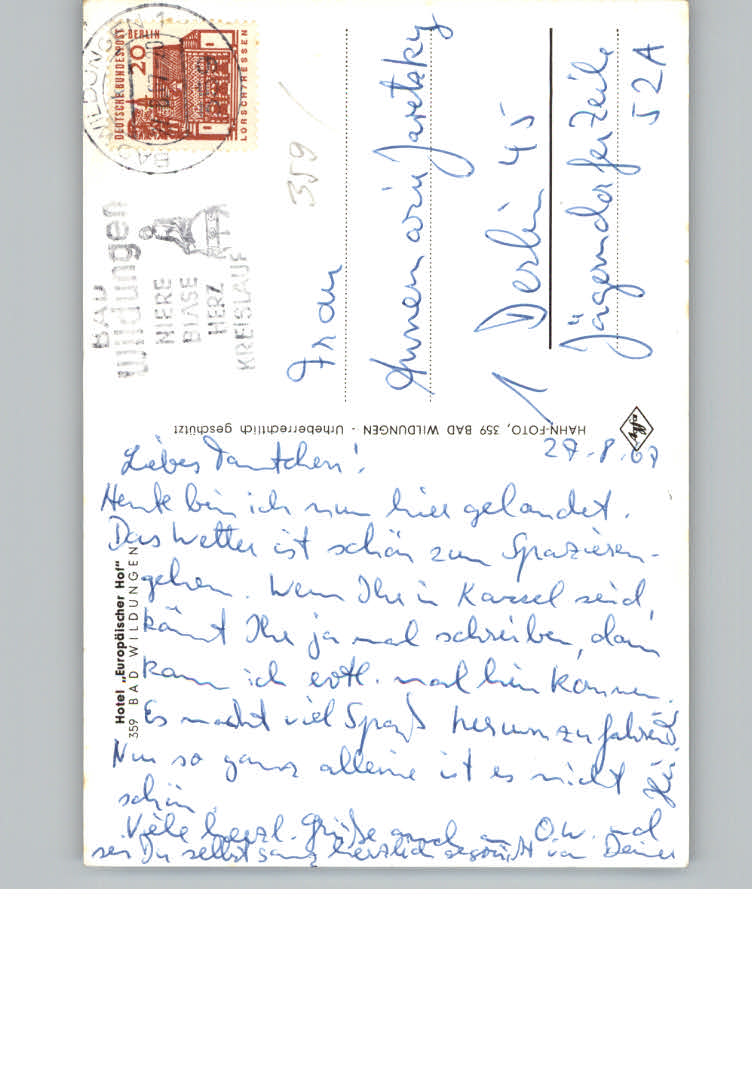 DEUTSCHE BUNDESPOST BERLIN
20
LORSCH/HESSEN
BAD WILDUNGEN 1
BAD
Wildungen
NIERE
BLASE
HERZ
KREISLAUF
359
Frau
Annemarie Jaretzky
1 Berlin 45
Jägerndorfer Zeile
52A
HAHN-FOTO, 359 BAD WILDUNGEN - Urheberrechtlich geschützt
Hotel „Europäischer Hof"
359 BAD WILDUNGEN
27.8.67
Liebes Tantchen!
Heute bin ich nun hier gelandet.
Das Wetter ist schön zum Spazieren-
gehen. Wenn Ihr in Kassel seid,
könnt Ihr ja mal schreiben, dann
kann ich evtl. mal hin kommen.
Es macht viel Spaß herumzufahren.
Nur so ganz alleine ist es nicht
schön.
Viele herzl. Grüße auch an O.W. und
sei Du selbst ganz herzlich gegrüßt von Deiner